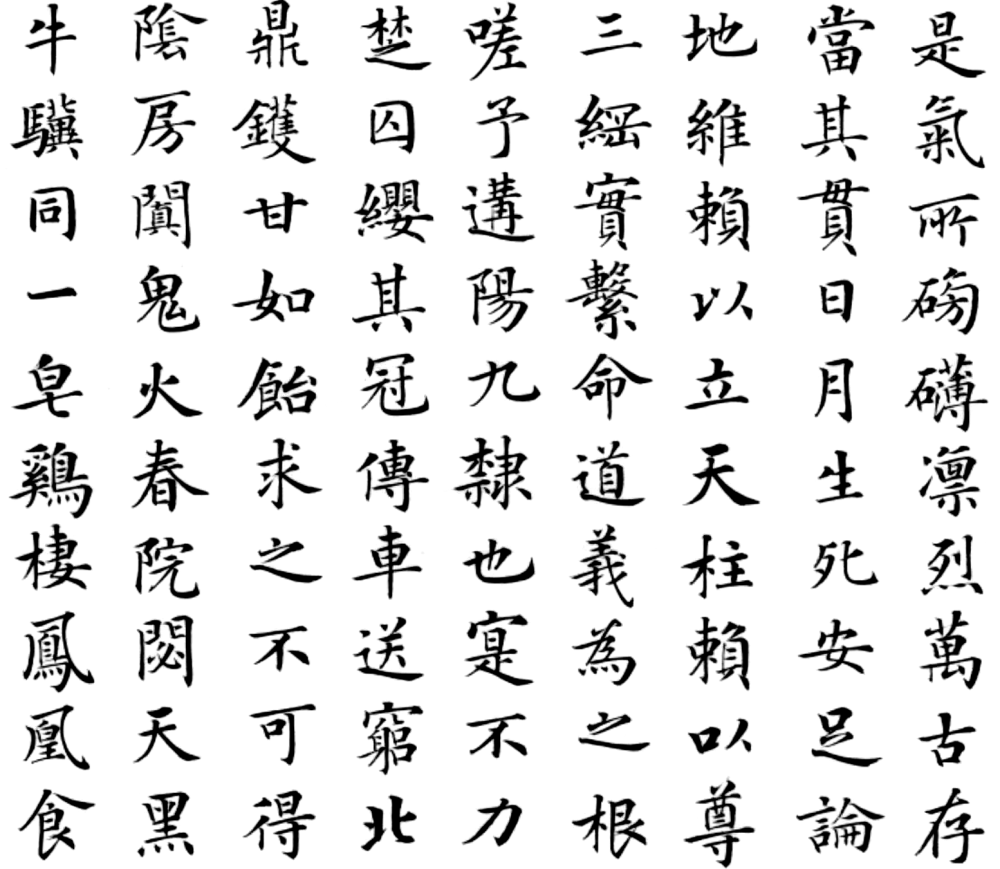 是氣所磅礴凜烈萬古存
當其貫日月生死安足論
地維賴以立天柱賴以尊
三綱實繫命道義為之根
嗟予遘陽九隸也寔不力
楚囚纓其冠傳車送窮北
鼎鑊甘如飴求之不可得
陰房闃鬼火春院閟天黑
牛驥同一皂鷄棲鳳凰食